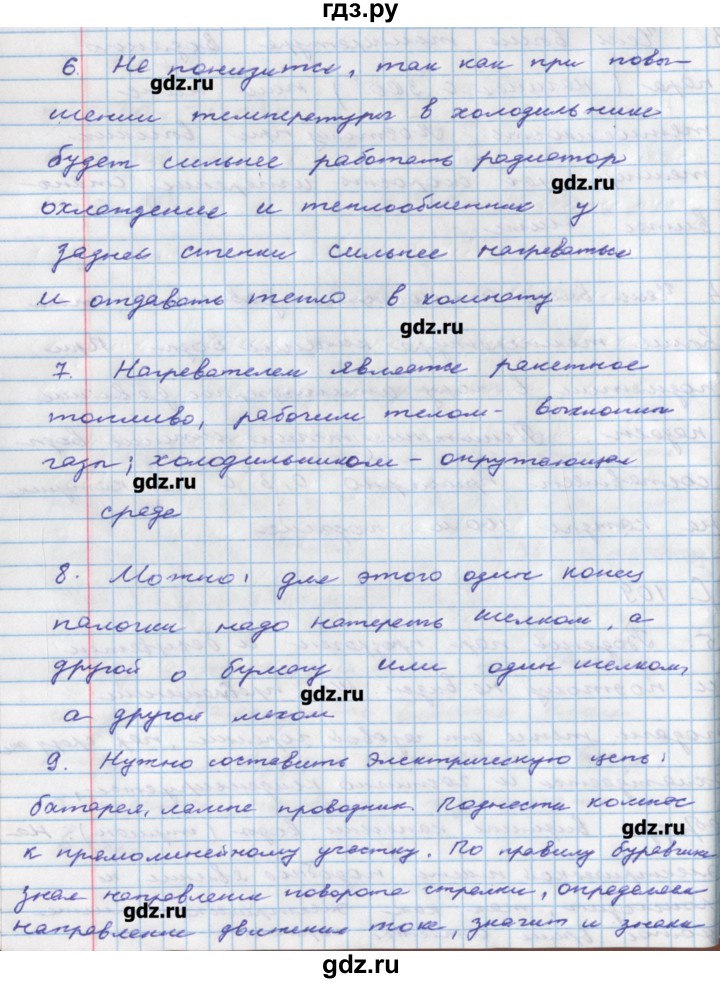 гдз.ру
gdz.ru
6. Не понизится, так как при повы-
шении температуры в холодильнике
будет сильнее работать радиатор
gdz.ru
охлаждение и теплообменник у
задней стенки сильнее нагреваться
и отдавать тепло в комнату
gdz.ru
7. Нагревателем является ракетное
топливо, рабочим телом - выхлопные
газы; холодильником - окружающая
gdz.ru
среда
8. Можно: для этого один конец
палочки надо натереть шелком, а
другой о бумагу или один шелком,
gdz.ru
а другой мехом
9. Нужно составить электрическую цепь:
батарея, лампа проводник. Поднести компас
gdz.ru
к прямолинейному участку. По правилу буравчика
зная направления поворота стрелки, определяем
gdz.ru
направление движения тока, значит и знаки
gdz.ru